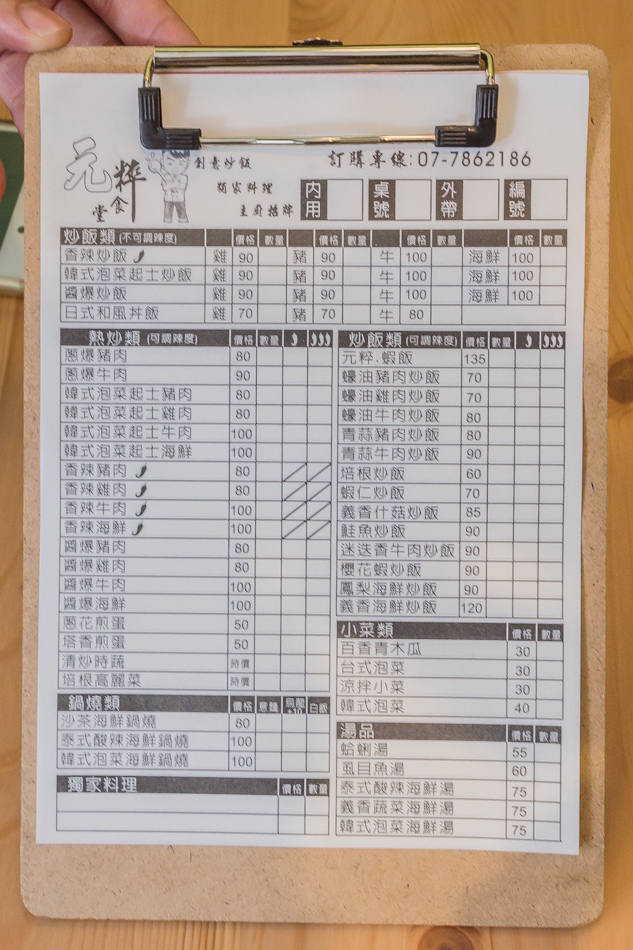 元粹 食堂
創意炒飯
獨家料理
主廚招牌
訂購專線:07-7862186
內用 桌號 外帶 編號
炒飯類 (不可調辣度) 價格 數量 價格 數量 價格 數量 價格 數量
香辣炒飯 雞 90 豬 90 牛 100 海鮮 100
韓式泡菜起士炒飯 雞 90 豬 90 牛 100 海鮮 100
醬爆炒飯 雞 90 豬 90 牛 100 海鮮 100
日式和風丼飯 雞 70 豬 70 牛 80
熱炒類 (可調辣度) 價格 數量
蔥爆豬肉 80
蔥爆牛肉 90
韓式泡菜起士豬肉 80
韓式泡菜起士雞肉 80
韓式泡菜起士牛肉 100
韓式泡菜起士海鮮 100
香辣豬肉 80
香辣雞肉 80
香辣牛肉 100
香辣海鮮 100
醬爆豬肉 80
醬爆雞肉 80
醬爆牛肉 100
醬爆海鮮 100
蔥花煎蛋 50
塔香煎蛋 50
清炒時蔬 時價
培根高麗菜 時價
鍋燒類 價格 意麵 烏龍+10 白飯
沙茶海鮮鍋燒 80
泰式酸辣海鮮鍋燒 100
韓式泡菜海鮮鍋燒 100
獨家料理 價格 數量
炒飯類 (可調辣度) 價格 數量
元粹.蝦飯 135
蠔油豬肉炒飯 70
蠔油雞肉炒飯 70
蠔油牛肉炒飯 80
青蒜豬肉炒飯 80
青蒜牛肉炒飯 90
培根炒飯 60
蝦仁炒飯 70
義香什菇炒飯 85
鮭魚炒飯 90
迷迭香牛肉炒飯 90
櫻花蝦炒飯 90
鳳梨海鮮炒飯 90
義香海鮮炒飯 120
小菜類 價格 數量
百香青木瓜 30
台式泡菜 30
涼拌小菜 30
韓式泡菜 40
湯品 價格 數量
蛤蜊湯 55
虱目魚湯 60
泰式酸辣海鮮湯 75
義香蔬菜海鮮湯 75
韓式泡菜海鮮湯 75